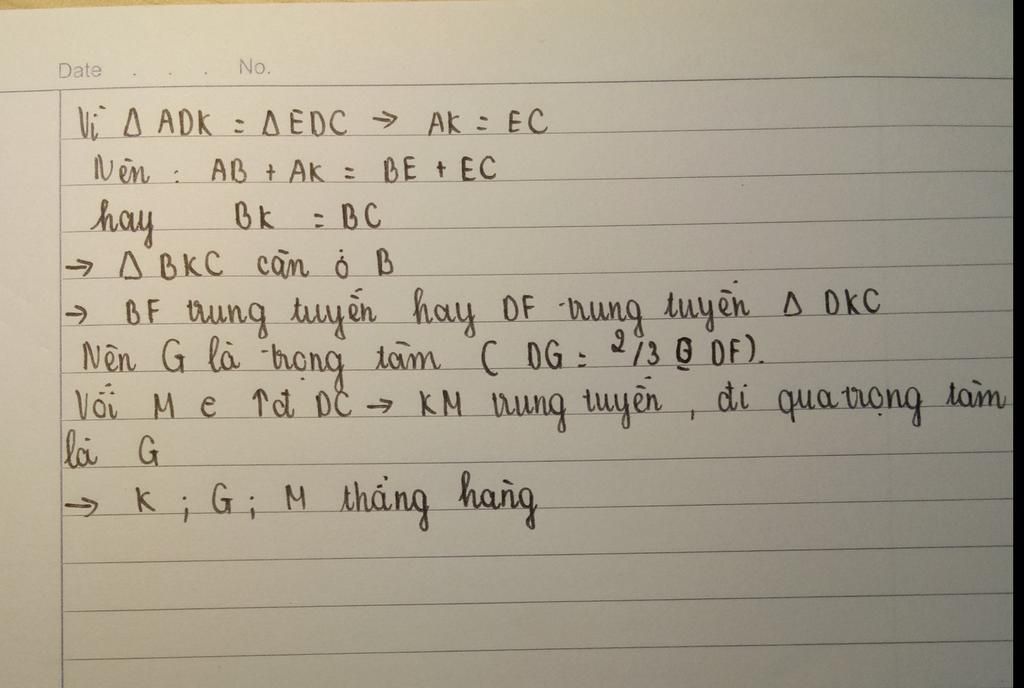 Date . . . No.
Vì Δ ADK = Δ EDC → AK = EC
Nên : AB + AK = BE + EC
hay BK = BC
→ Δ BKC cân ở B
→ BF trung tuyến hay DF trung tuyến Δ DKC
Nên G là trọng tâm ( DG = 2/3 DF).
Với M e đ DC → KM trung tuyến , đi qua trọng tâm
là G
→ K ; G ; M thẳng hàng